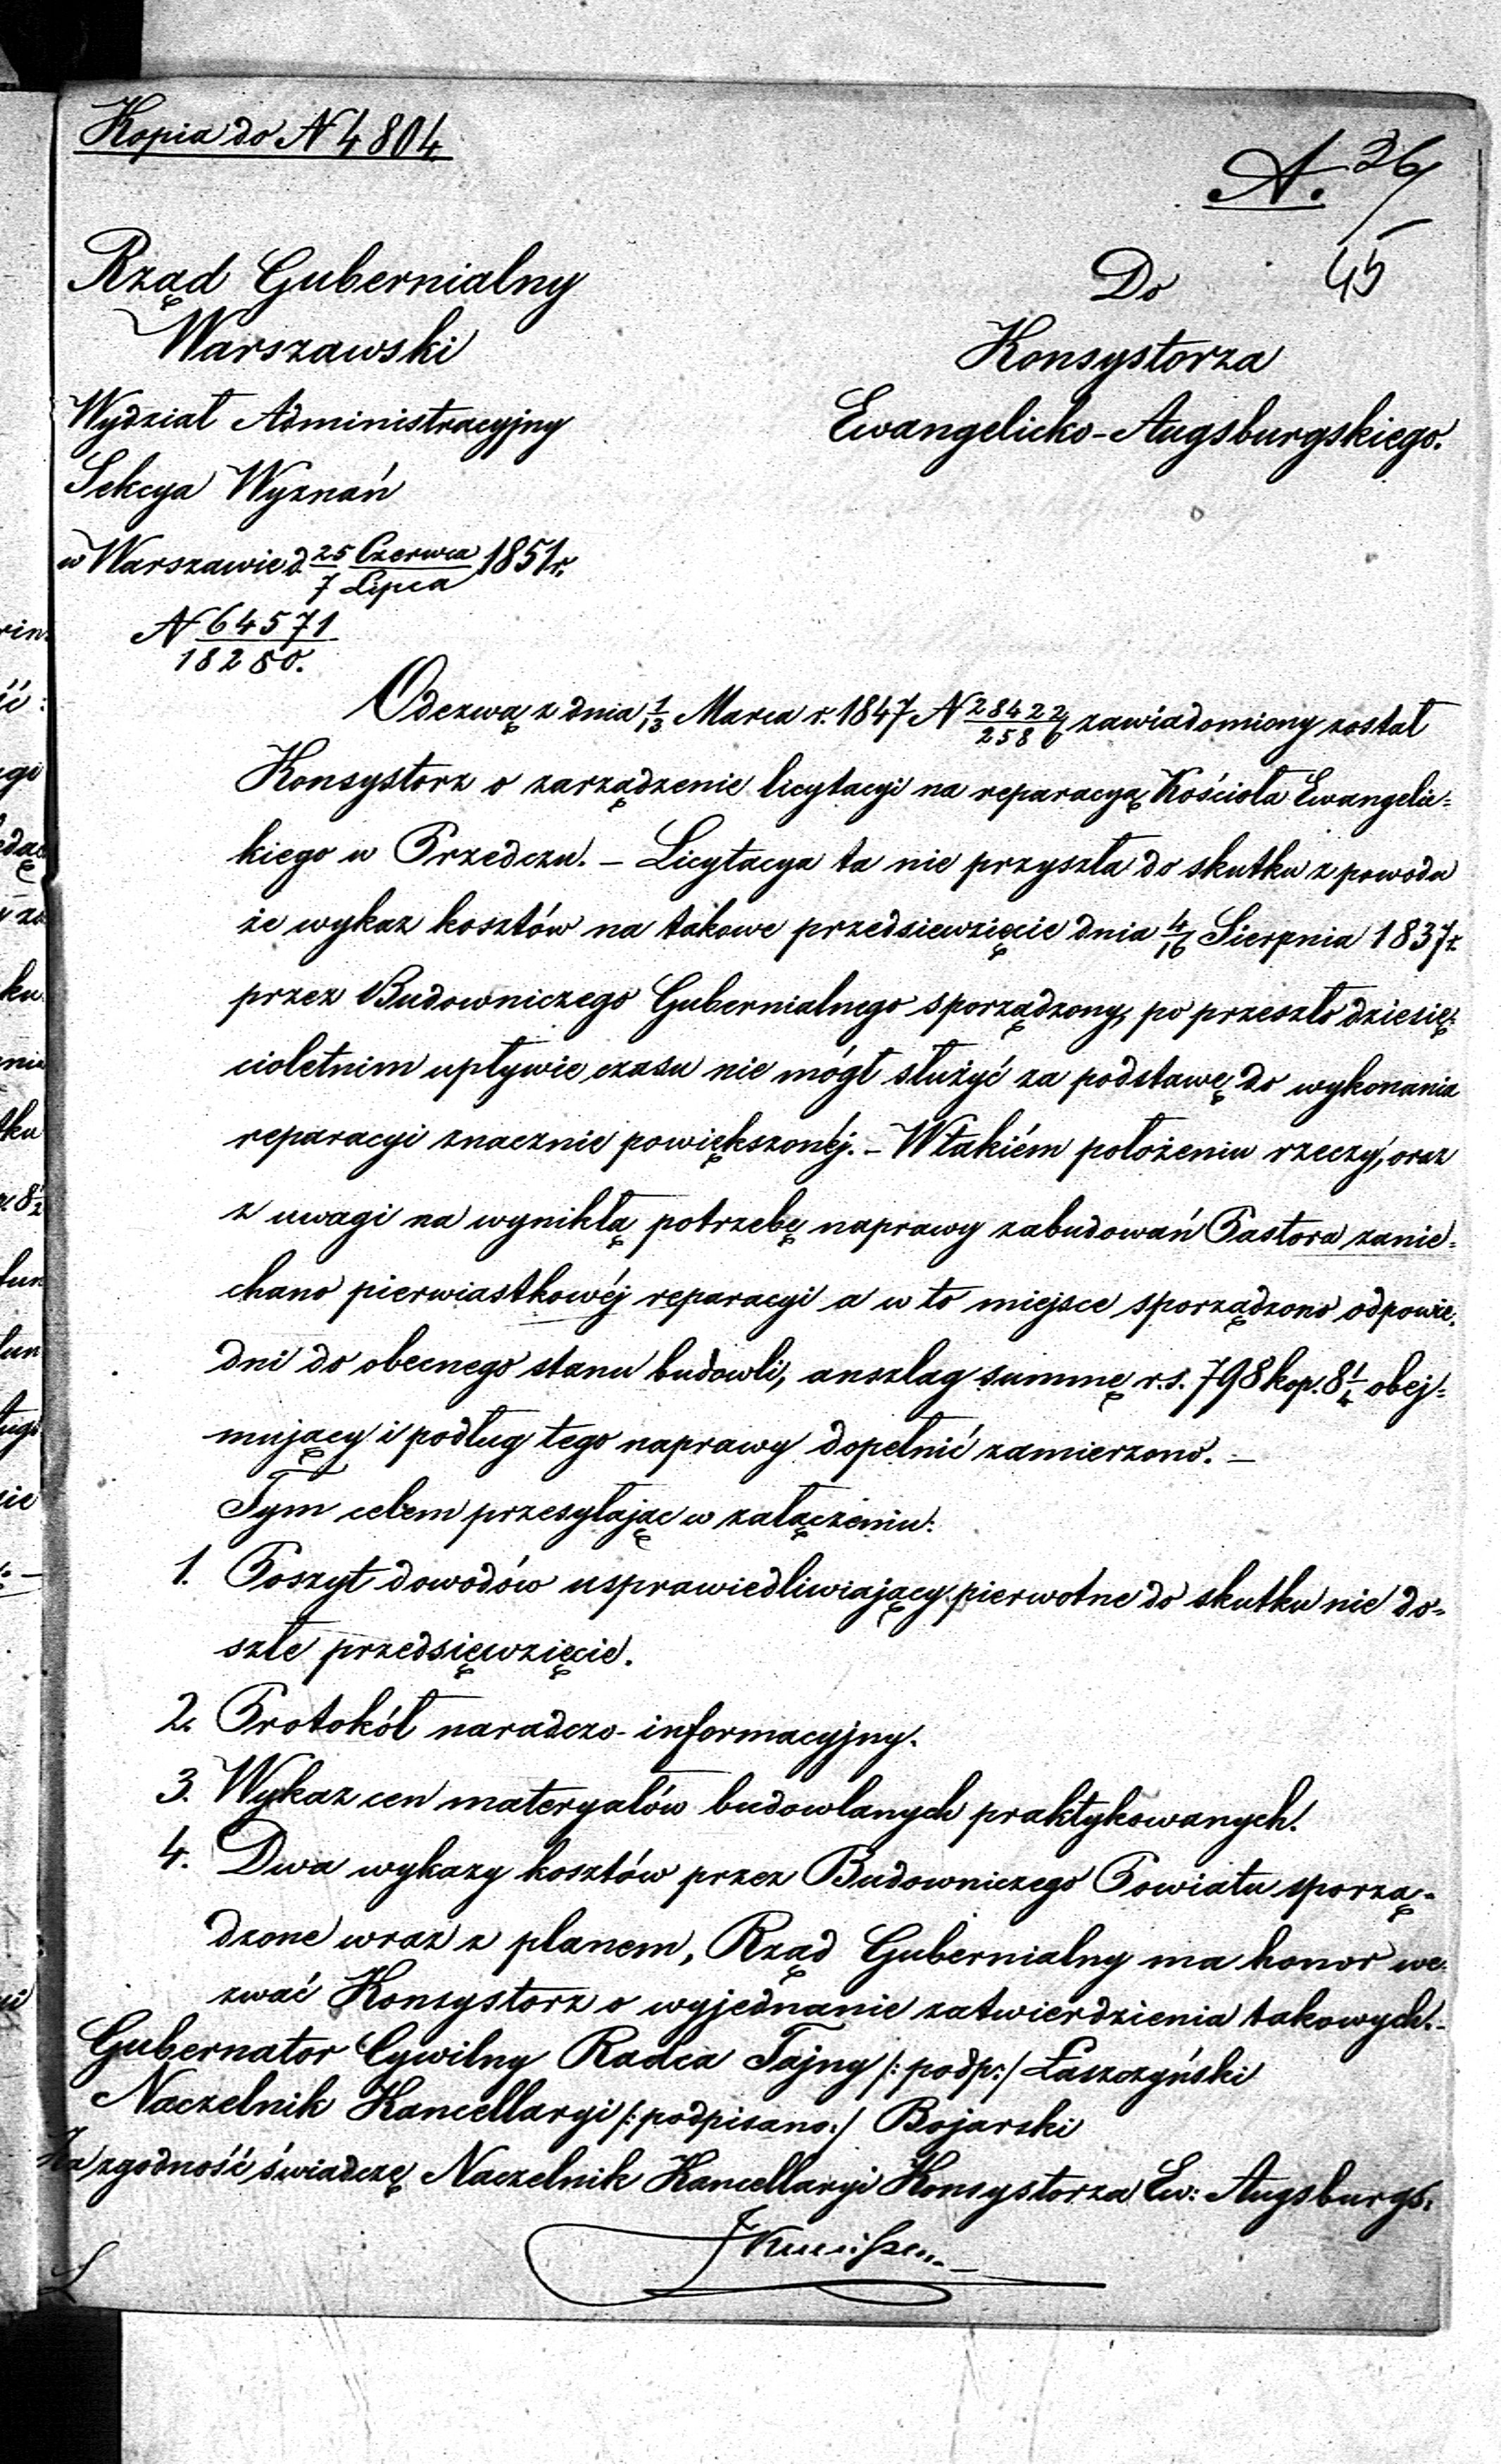 Kopia do N 4804
A. 26
45
Rząd Gubernialny
Warszawski
Wydział Administracyjny
Sekcya Wyznań
w Warszawie d. 25 Czerwca / 7 Lipca 1851 r.
N 64571 / 18280.
Do
Konsystorza
Ewangelicko-Augsburgskiego.
Odezwą z dnia 1/13 Marca r. 1847 N 28422/2586 zawiadomiony został
Konsystorz o zarządzenie licytacyi na reparacyą Kościoła Ewangelic=
kiego w Przedczu. – Licytacya ta nie przyszła do skutku z powodu
że wykaz kosztów na takowe przedsiewzięcie dnia 4/16 Sierpnia 1837 r.
przez Budowniczego Gubernialnego sporządzony, po przeszło dziesię=
cioletnim upływie czasu nie mógł służyć za podstawę do wykonania
reparacyi znacznie powiększonéj. – W takiém położeniu rzeczy, oraz
z uwagi na wynikłą potrzebę naprawy zabudowań Pastora zanie=
chano pierwiastkowéj reparacyi a w to miejsce sporządzono odpowie=
dni do obecnego stanu budowli, anszlag summę r.s. 798 kop. 8 1/4 obej=
mujący i podług tego naprawy dopełnić zamierzono. –
Tym celem przesyłając w załączeniu:
1. Poszyt dowodów usprawiedliwiający pierwotne do skutku nie do=
szłe przedsięwzięcie.
2. Protokół naradczo-informacyjny.
3. Wykaz cen materyałów budowlanych praktykowanych.
4. Dwa wykazy kosztów przez Budowniczego Powiatu sporzą=
dzone wraz z planem, Rząd Gubernialny ma honor we=
zwać Konsystorz o wyjednanie zatwierdzienia takowych. –
Gubernator Cywilny Radca Tajny /: podp: / Łaszczyński
Naczelnik Kancellaryi /: podpisano: / Bojarski
Za zgodność świadczę Naczelnik Kancellaryi Konsystorza Ew: Augsburgs.